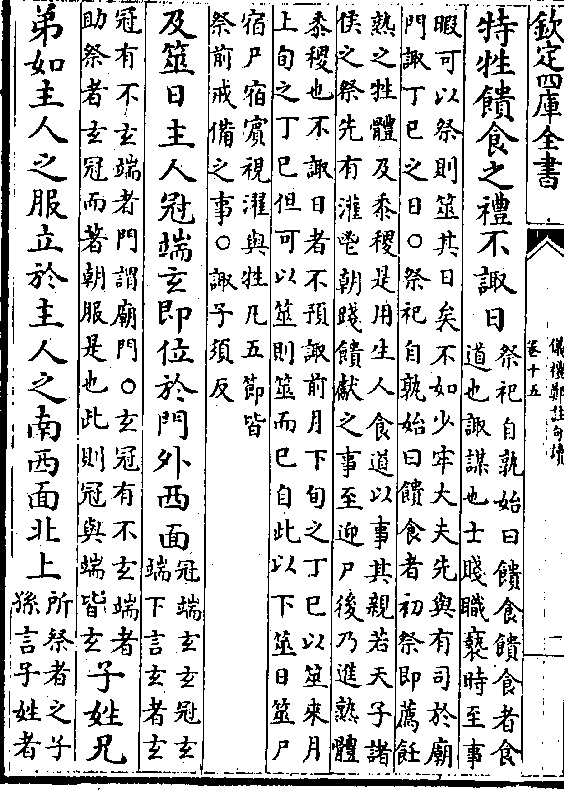 欽定四庫全書
儀禮鄭註句讀
卷十五
特牲饋食之禮不諏日
祭祀自孰始曰饋食饋食者食
道也諏謀也士賤職䙝時至事
暇可以祭則筮其日矣不如少牢大夫先與有司於廟
門諏丁巳之日○祭祀自孰始曰饋食者初祭即薦飪
熟之牲體及黍稷是用生人食道以事其親若天子諸
侯之祭先有灌鬯朝踐饋獻之事至迎尸後乃進熟體
黍稷也不諏日者不預諏前月下旬之丁巳以筮來月
上旬之丁巳但可以筮則筮而已自此以下筮日筮尸
宿尸宿賓視濯與牲凡五節皆
祭前戒備之事○諏子須反
及筮日主人冠端玄即位於門外西面
冠端玄玄冠玄
端下言玄者玄
冠有不玄端者門謂廟門○玄冠有不玄端者
助祭者玄冠而著朝服是也此則冠與端皆玄
子姓兄
弟如主人之服立於主人之南西面北上
所祭者之子
孫言子姓者